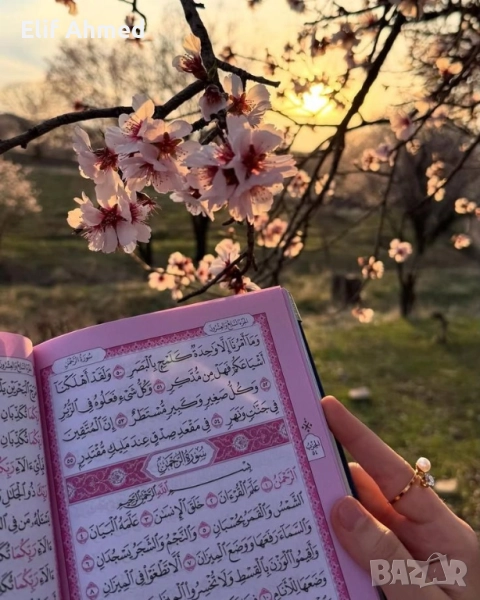 Elif Ahmed
سُورَةُ الرَّحْمٰن
وَمَا أَمْرُنَا إِلَّا وَاحِدَةٌ كَلَمْحٍ بِالْبَصَرِ ۝٥٠ وَلَقَدْ أَهْلَكْنَا
أَشْيَاعَكُمْ فَهَلْ مِن مُّدَّكِرٍ ۝٥١ وَكُلُّ شَيْءٍ فَعَلُوهُ فِي الزُّبُرِ
۝٥٢ وَكُلُّ صَغِيرٍ وَكَبِيرٍ مُّسْتَطَرٌ ۝٥٣ إِنَّ الْمُتَّقِينَ
فِي جَنَّاتٍ وَنَهَرٍ ۝٥٤ فِي مَقْعَدِ صِدْقٍ عِندَ مَلِيكٍ مُّقْتَدِرٍ ۝٥٥
سُورَةُ الرَّحْمٰنِ
بِسْمِ اللَّهِ الرَّحْمٰنِ الرَّحِيمِ
الرَّحْمٰنُ ۝١ عَلَّمَ الْقُرْءَانَ ۝٢ خَلَقَ الْإِنسَانَ ۝٣ عَلَّمَهُ الْبَيَانَ ۝٤
الشَّمْسُ وَالْقَمَرُ بِحُسْبَانٍ ۝٥ وَالنَّجْمُ وَالشَّجَرُ يَسْجُدَانِ ۝٦
وَالسَّمَاءَ رَفَعَهَا وَوَضَعَ الْمِيزَانَ ۝٧ أَلَّا تَطْغَوْا فِي الْمِيزَانِ ۝٨
وَأَقِيمُوا الْوَزْنَ بِالْقِسْطِ وَلَا تُخْسِرُوا الْمِيزَانَ
وَضَعَهَا لِلْأَنَامِ
BAZAR